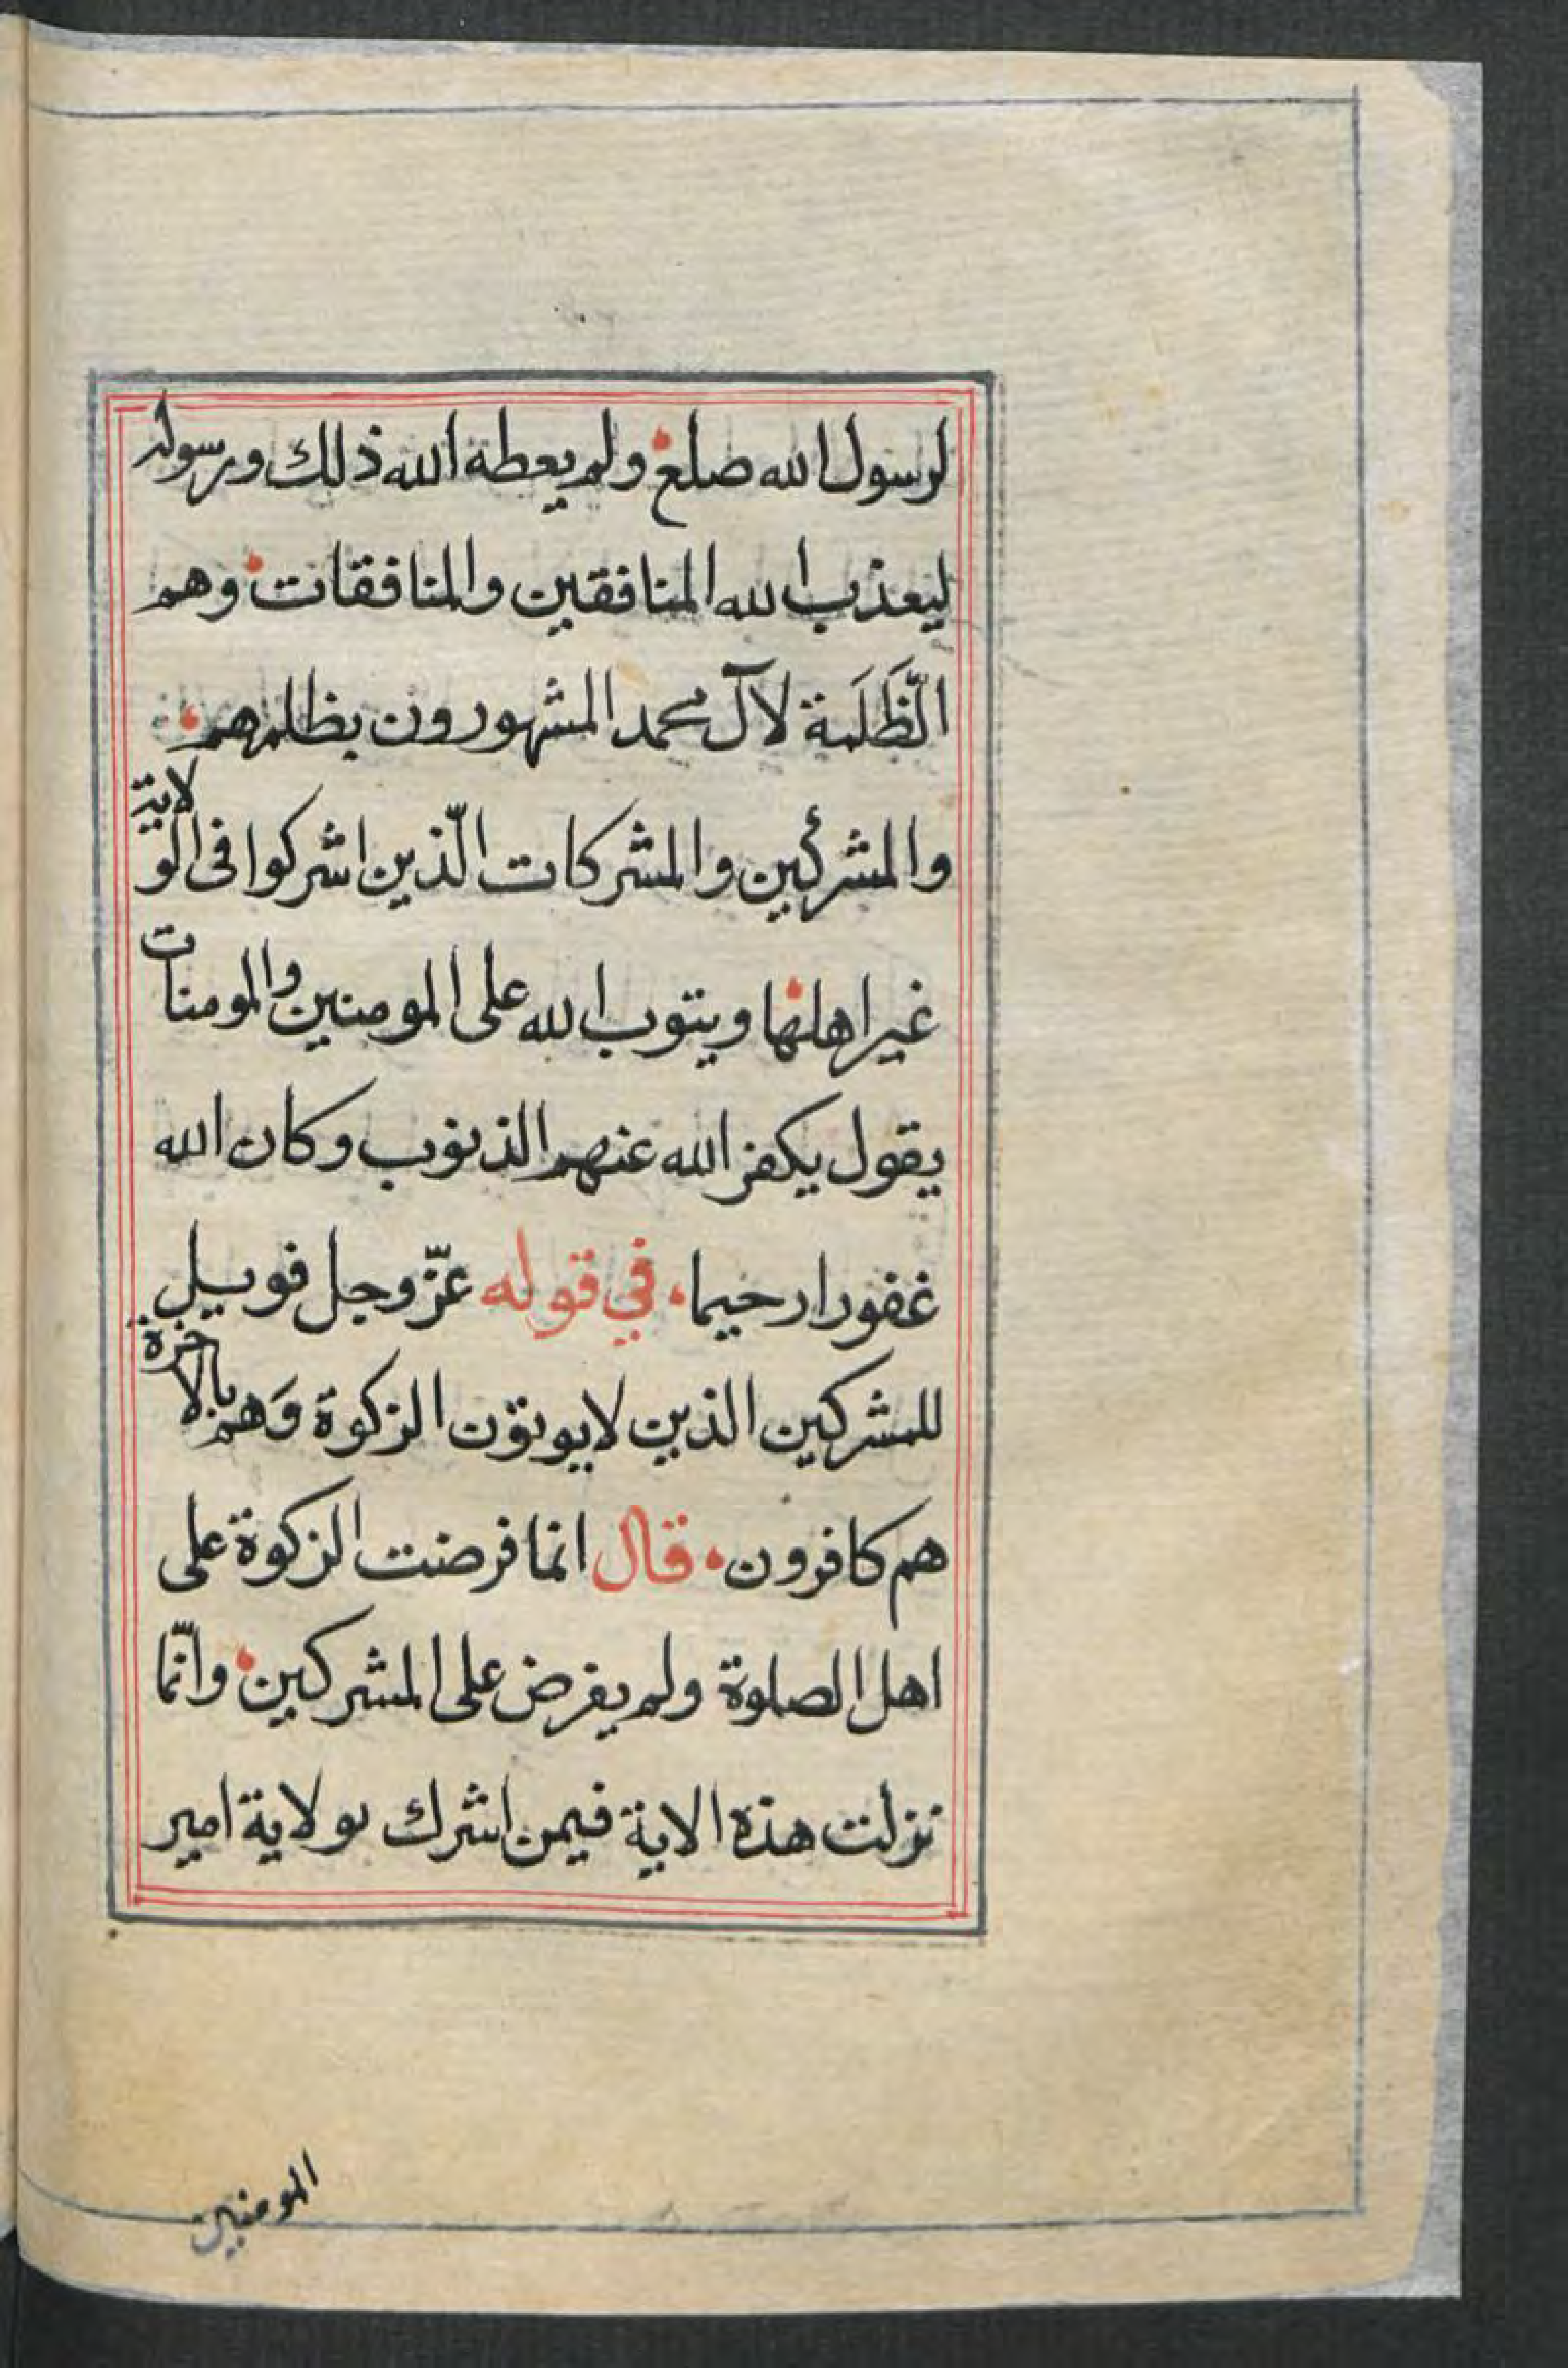 لرسول الله صلع ولم يعطه الله ذلك ورسوله
ليعذب الله المنافقين والمنافقات وهم
الظَّلَمَة لآل محمد المشهورون بظلمهم
والمشركين والمشركات الّذين اشركوا فى الولاية
غير اهلها ويتوب الله على المومنين والمومنات
يقول يكفر الله عنهم الذنوب وكان الله
غفورا رحيما في قوله عزّ وجل فويل
للمشركين الذين لا يوتون الزكوة وَهم بالاخرة
هم كافرون قال انما فرضت الزكوة على
اهل الصلوة ولم يفرض على المشركين وانّما
نزلت هذه الاية فيمن اشرك بولاية امير
المومنين